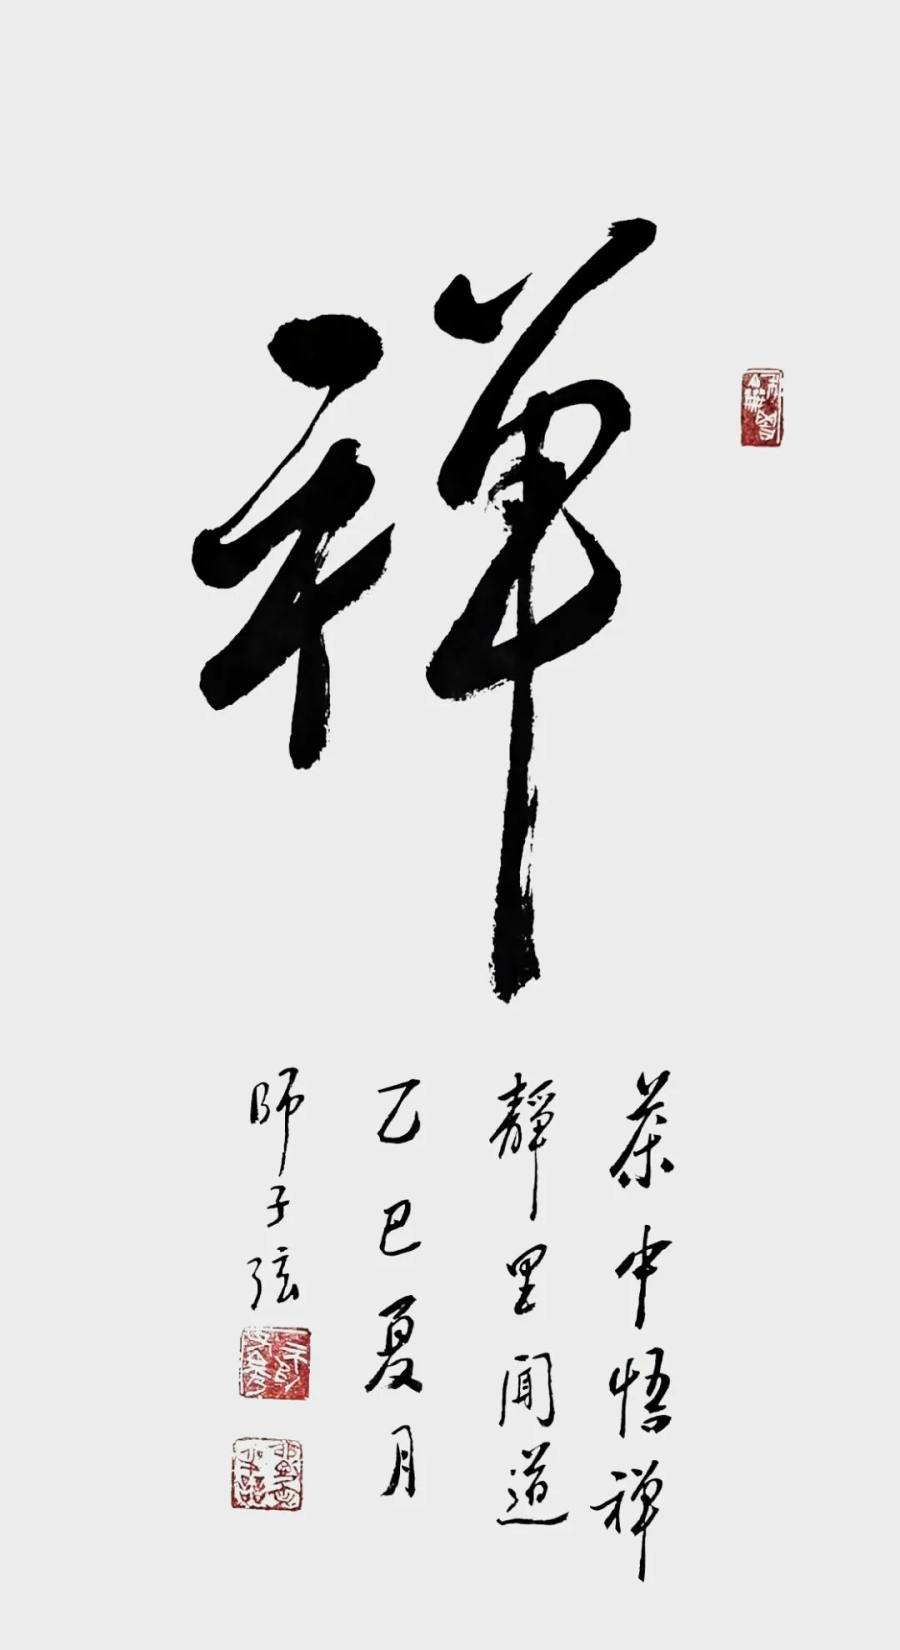 禅
茶中悟禅
靜里闻道
乙巳夏月
师子弦